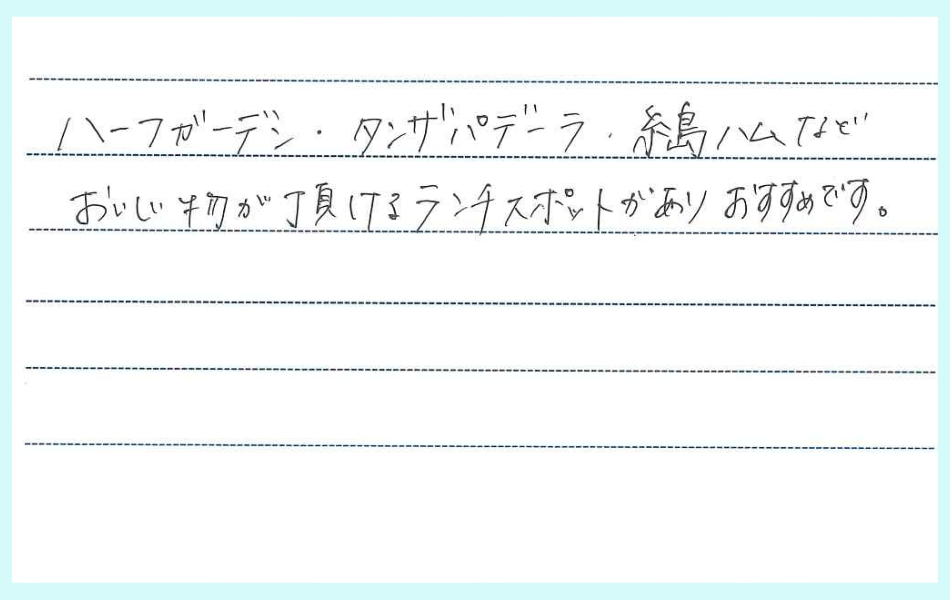 ハーフガーデン・タンザパデーラ・糸島ハムなど
おいしい物が頂けるランチスポットがありおすすめです。